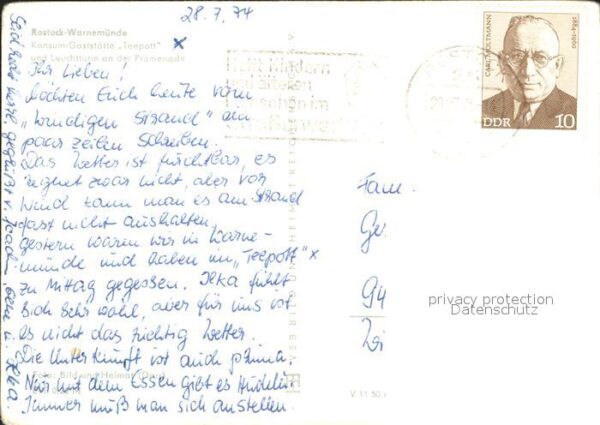 28.7.74
Rostock-Warnemünde
Konsum-Gaststätte „Teepott" x
und Leuchtturm an der Promenade
Ihr Lieben!
Möchten Euch heute vom
„windigen Strand" ein
paar Zeilen schreiben.
Das Wetter ist furchtbar, es
regnet zwar nicht, aber vor
Wind kann man es am Strand
fast nicht aushalten.
Gestern waren wir in Warne-
münde und haben im „Teepott" x
zu Mittag gegessen. Ilka fühlt
sich sehr wohl, aber für uns ist
es nicht das richtige Wetter.
Die Unterkunft ist auch prima.
Nur mit dem Essen gibt es
Immer muß man sich anstellen.
Seid recht herzl. gegrüßt v. u. Ilka.
Foto: Bild und Heimat
VEB BILD UND HEIMAT REICHENBACH
V 11 50
Helft Kindern
CARL MOLTMANN
1884-1960
DDR 10
Fam.
Ge
94
privacy protection
Datenschutz